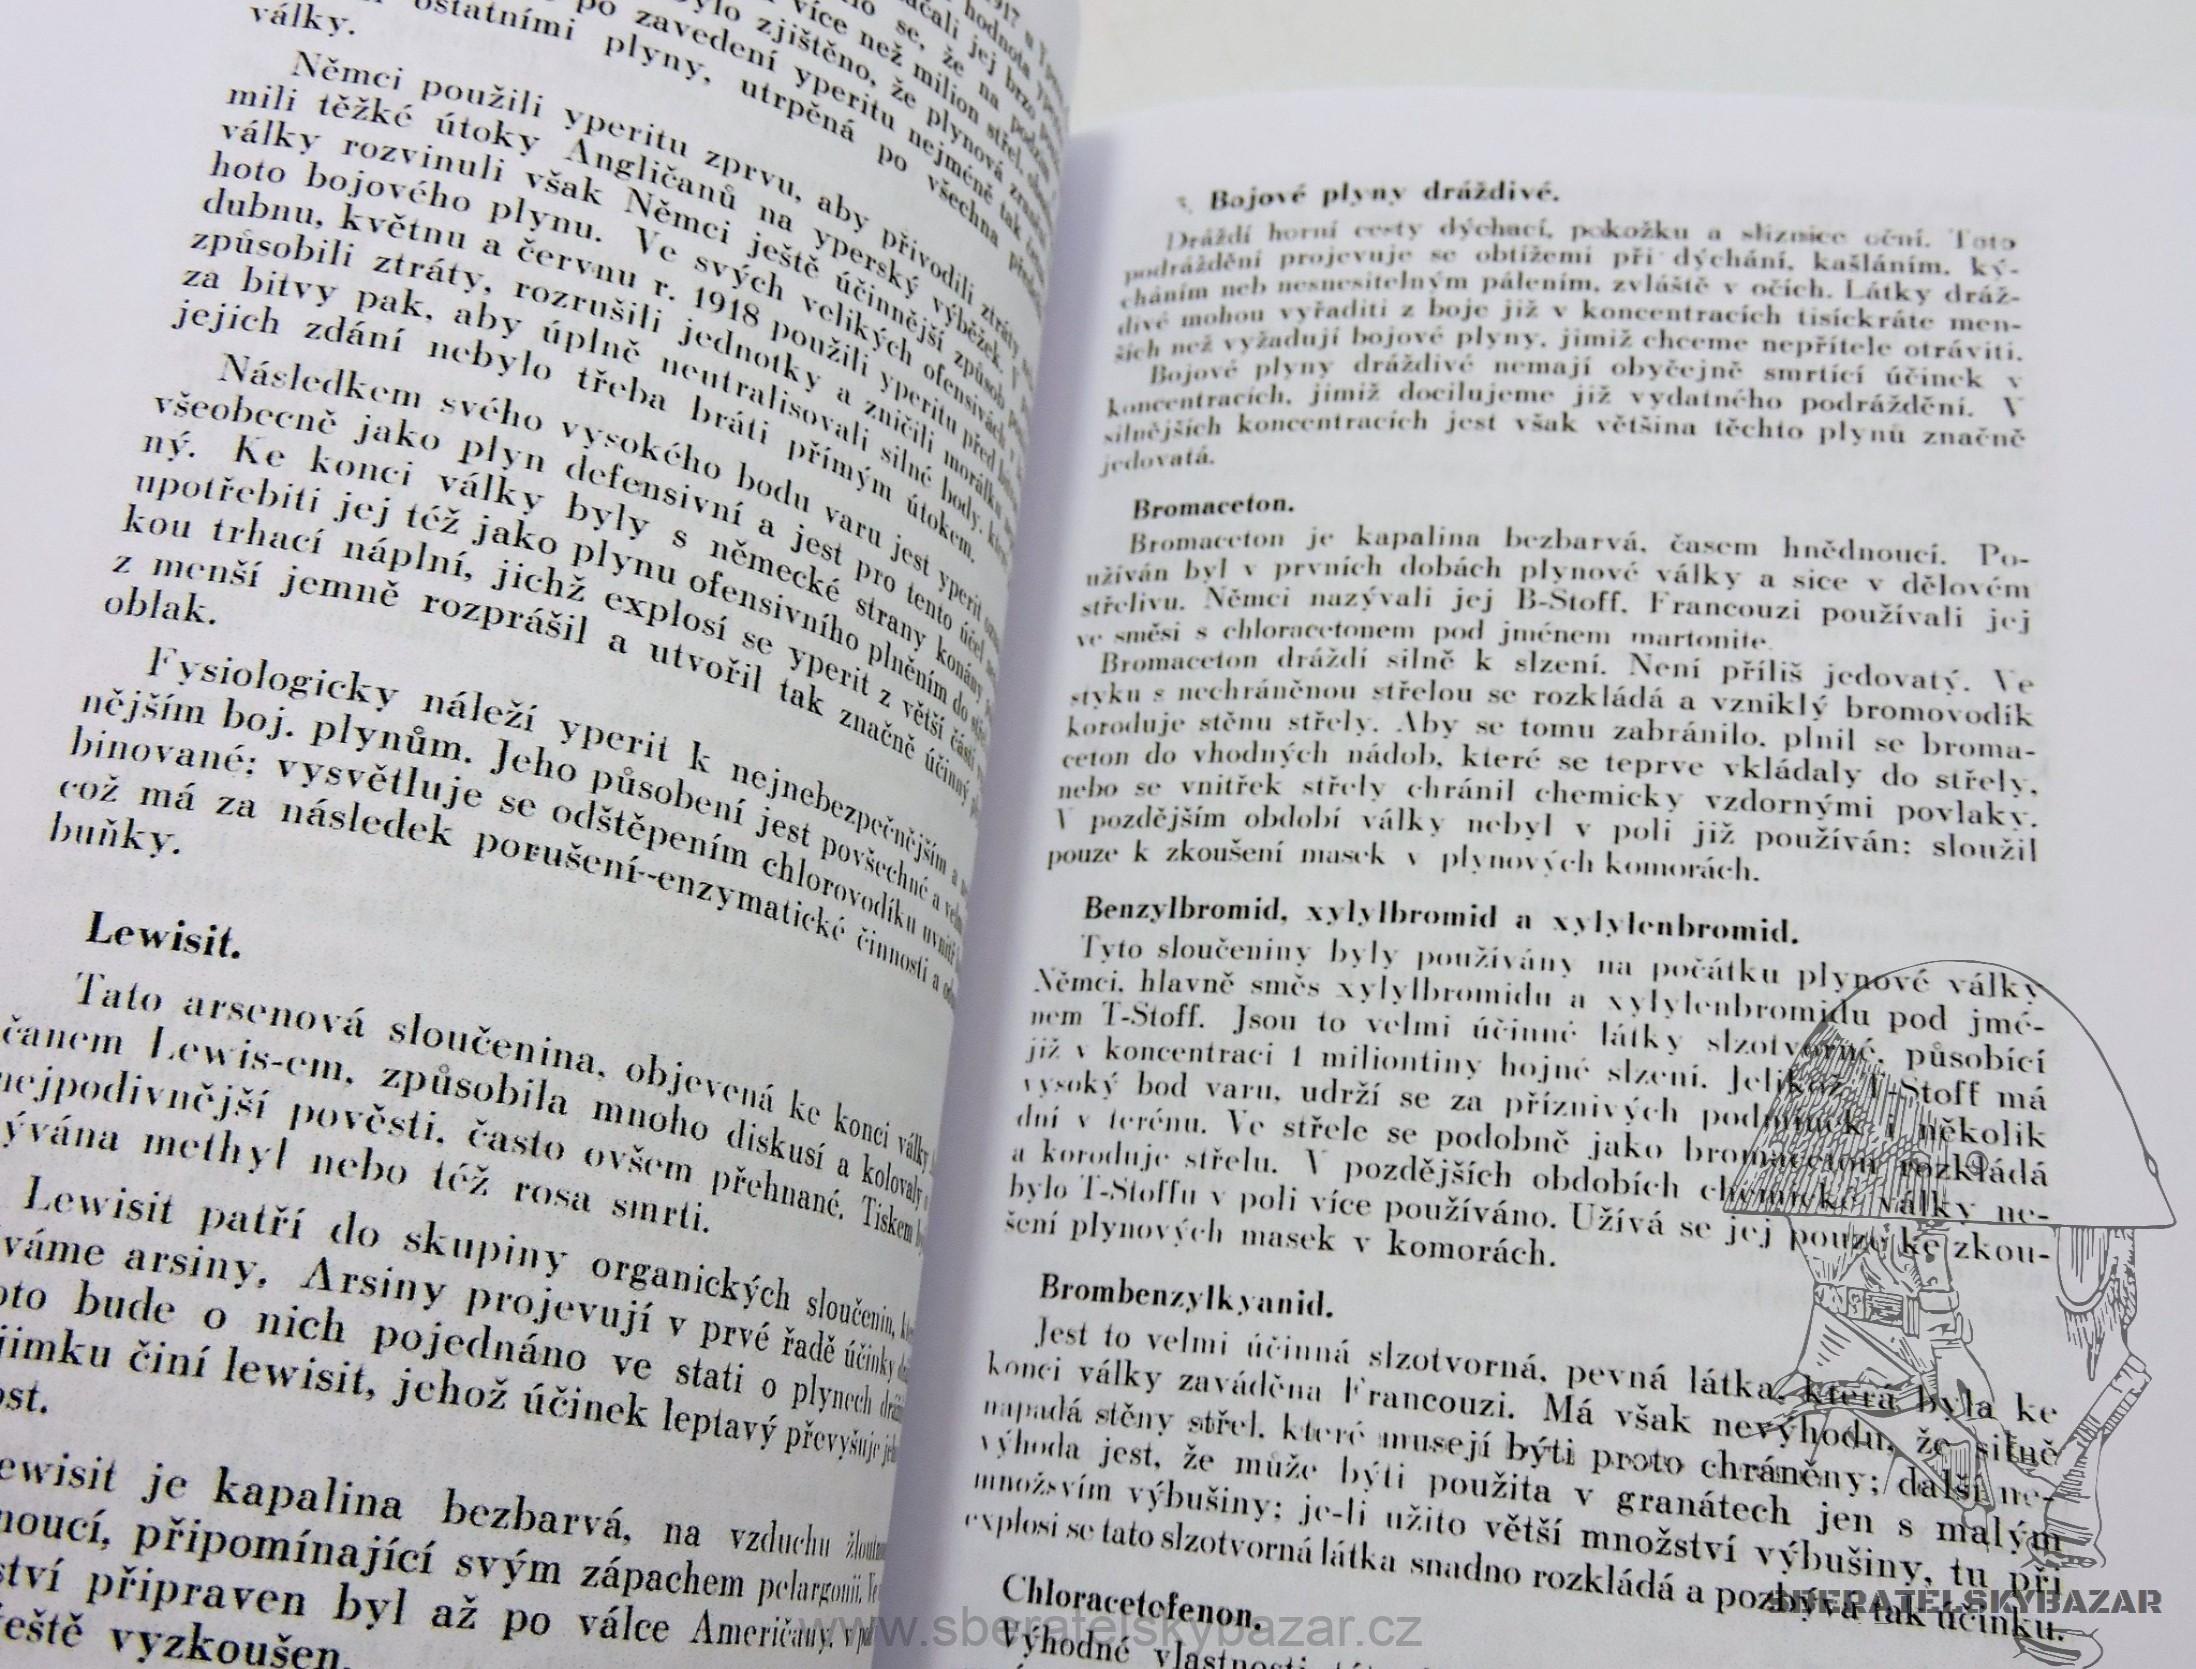 ostatními plyny, utrpěná po všechna
války.
Němci použili yperitu zprvu, aby přivodili ztráty
mili těžké útoky Angličanů na yperský výběžek. V
války rozvinuli však Němci ještě účinnější způsob
hoto bojového plynu. Ve svých velikých ofensivách v
dubnu, květnu a červnu r. 1918 použili yperitu před
způsobili ztráty, rozrušili jednotky a zničili morálku
za bitvy pak, aby úplně neutralisovali silné body,
jejich zdání nebylo třeba bráti přímým útokem.
Následkem svého vysokého bodu varu jest yperit
všeobecně jako plyn defensivní a jest pro tento účel
ný. Ke konci války byly s německé strany konány
upotřebiti jej též jako plynu ofensivního plněním do
kou trhací náplní, jichž explosí se yperit z větší části
z menší jemně rozprášil a utvořil tak značně účinný
oblak.
Fysiologicky náleží yperit k nejnebezpečnějším a
nějším boj. plynům. Jeho působení jest povšechné a
binované; vysvětluje se odštěpením chlorovodíku uvnitř
což má za následek porušení enzymatické činnosti a
buňky.
Lewisit.
Tato arsenová sloučenina, objevená ke konci války
čanem Lewis-em, způsobila mnoho diskusí a kolovaly
nejpodivnější pověsti, často ovšem přehnané. Tiskem
ývána methyl nebo též rosa smrti.
Lewisit patří do skupiny organických sloučenin,
váme arsiny. Arsiny projevují v prvé řadě účinky
oto bude o nich pojednáno ve stati o plynech
jimku činí lewisit, jehož účinek leptavý převyšuje
ost.
ewisit je kapalina bezbarvá, na vzduchu
noucí, připomínající svým zápachem pelargonii.
ství připraven byl až po válce Američany,
ještě vyzkoušen.
Bojové plyny dráždivé.
Dráždí horní cesty dýchací, pokožku a sliznice oční. Toto
podráždění projevuje se obtížemi při dýchání, kašláním, ký-
cháním neb nesnesitelným pálením, zvláště v očích. Látky dráž-
divé mohou vyřaditi z boje již v koncentracích tisíckráte men-
ších než vyžadují bojové plyny, jimiž chceme nepřítele otráviti.
Bojové plyny dráždivé nemají obyčejně smrtící účinek v
koncentracích, jimiž docilujeme již vydatného podráždění. V
silnějších koncentracích jest však většina těchto plynů značně
jedovatá.
Bromaceton.
Bromaceton je kapalina bezbarvá, časem hnědnoucí. Po-
užíván byl v prvních dobách plynové války a sice v dělovém
střelivu. Němci nazývali jej B-Stoff, Francouzi používali jej
ve směsi s chloracetonem pod jménem martonite.
Bromaceton dráždí silně k slzení. Není příliš jedovatý. Ve
styku s nechráněnou střelou se rozkládá a vzniklý bromovodík
koroduje stěnu střely. Aby se tomu zabránilo, plnil se broma-
ceton do vhodných nádob, které se teprve vkládaly do střely,
nebo se vnitřek střely chránil chemicky vzdornými povlaky.
V pozdějším období války nebyl v poli již používán; sloužil
pouze k zkoušení masek v plynových komorách.
Benzylbromid, xylylbromid a xylylenbromid.
Tyto sloučeniny byly používány na počátku plynové války
Němci, hlavně směs xylylbromidu a xylylenbromidu pod jmé-
nem T-Stoff. Jsou to velmi účinné látky slzotvorné, působící
již v koncentraci 1 miliontiny hojné slzení. Jelikož T-Stoff má
vysoký bod varu, udrží se za příznivých podmínek i několik
dní v terénu. Ve střele se podobně jako bromaceton rozkládá
a koroduje střelu. V pozdějších obdobích chemické války ne-
bylo T-Stoffu v poli více používáno. Užívá se jej pouze ke zkou-
šení plynových masek v komorách.
Brombenzylkyanid.
Jest to velmi účinná slzotvorná, pevná látka, která byla ke
konci války zaváděna Francouzi. Má však nevýhodu, že silně
napadá stěny střel, které musejí býti proto chráněny; další ne-
výhoda jest, že může býti použita v granátech jen s malým
množsvím výbušiny; je-li užito větší množství výbušiny, tu při
explosi se tato slzotvorná látka snadno rozkládá a pozbývá tak účinku.
Chloracetofenon.
Výhodné vlastnosti
SBERATELSKYBAZAR
www.sberatelskybazar.cz